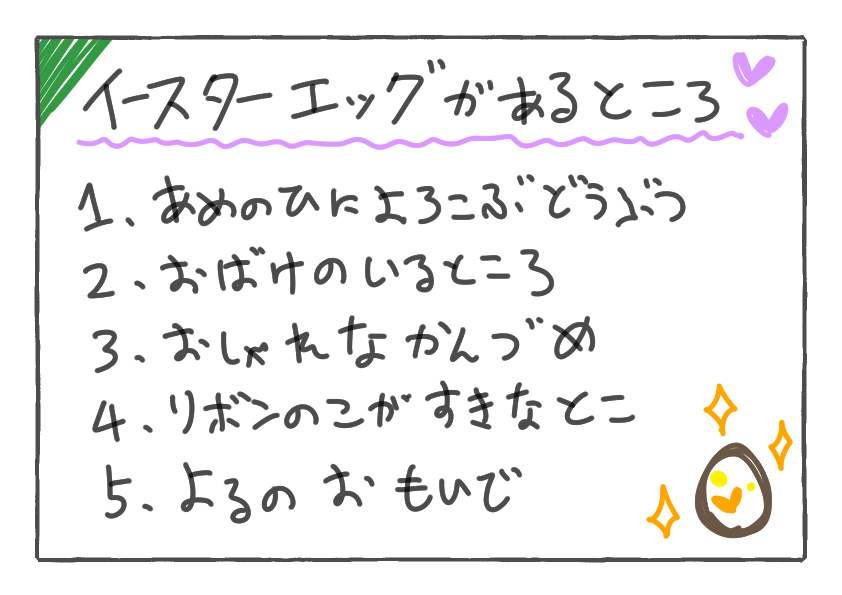 イースターエッグがあるところ
1、あめのひによろこぶどうぶつ
2、おばけのいるところ
3、おしゃれなかんづめ
4、リボンのこがすきなとこ
5、よるのおもいで